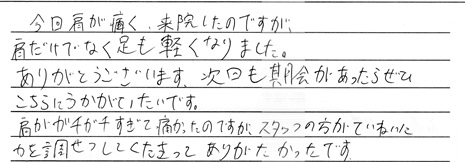 今回肩が痛く、来院したのですが、
肩だけでなく足も軽くなりました。
ありがとうございます。次回も機会があったらぜひ
こちらにうかがいたいです。
肩がガチガチすぎて痛かったのですが、スタッフの方がていねいに
力を調せつしてくださって ありがたかったです。